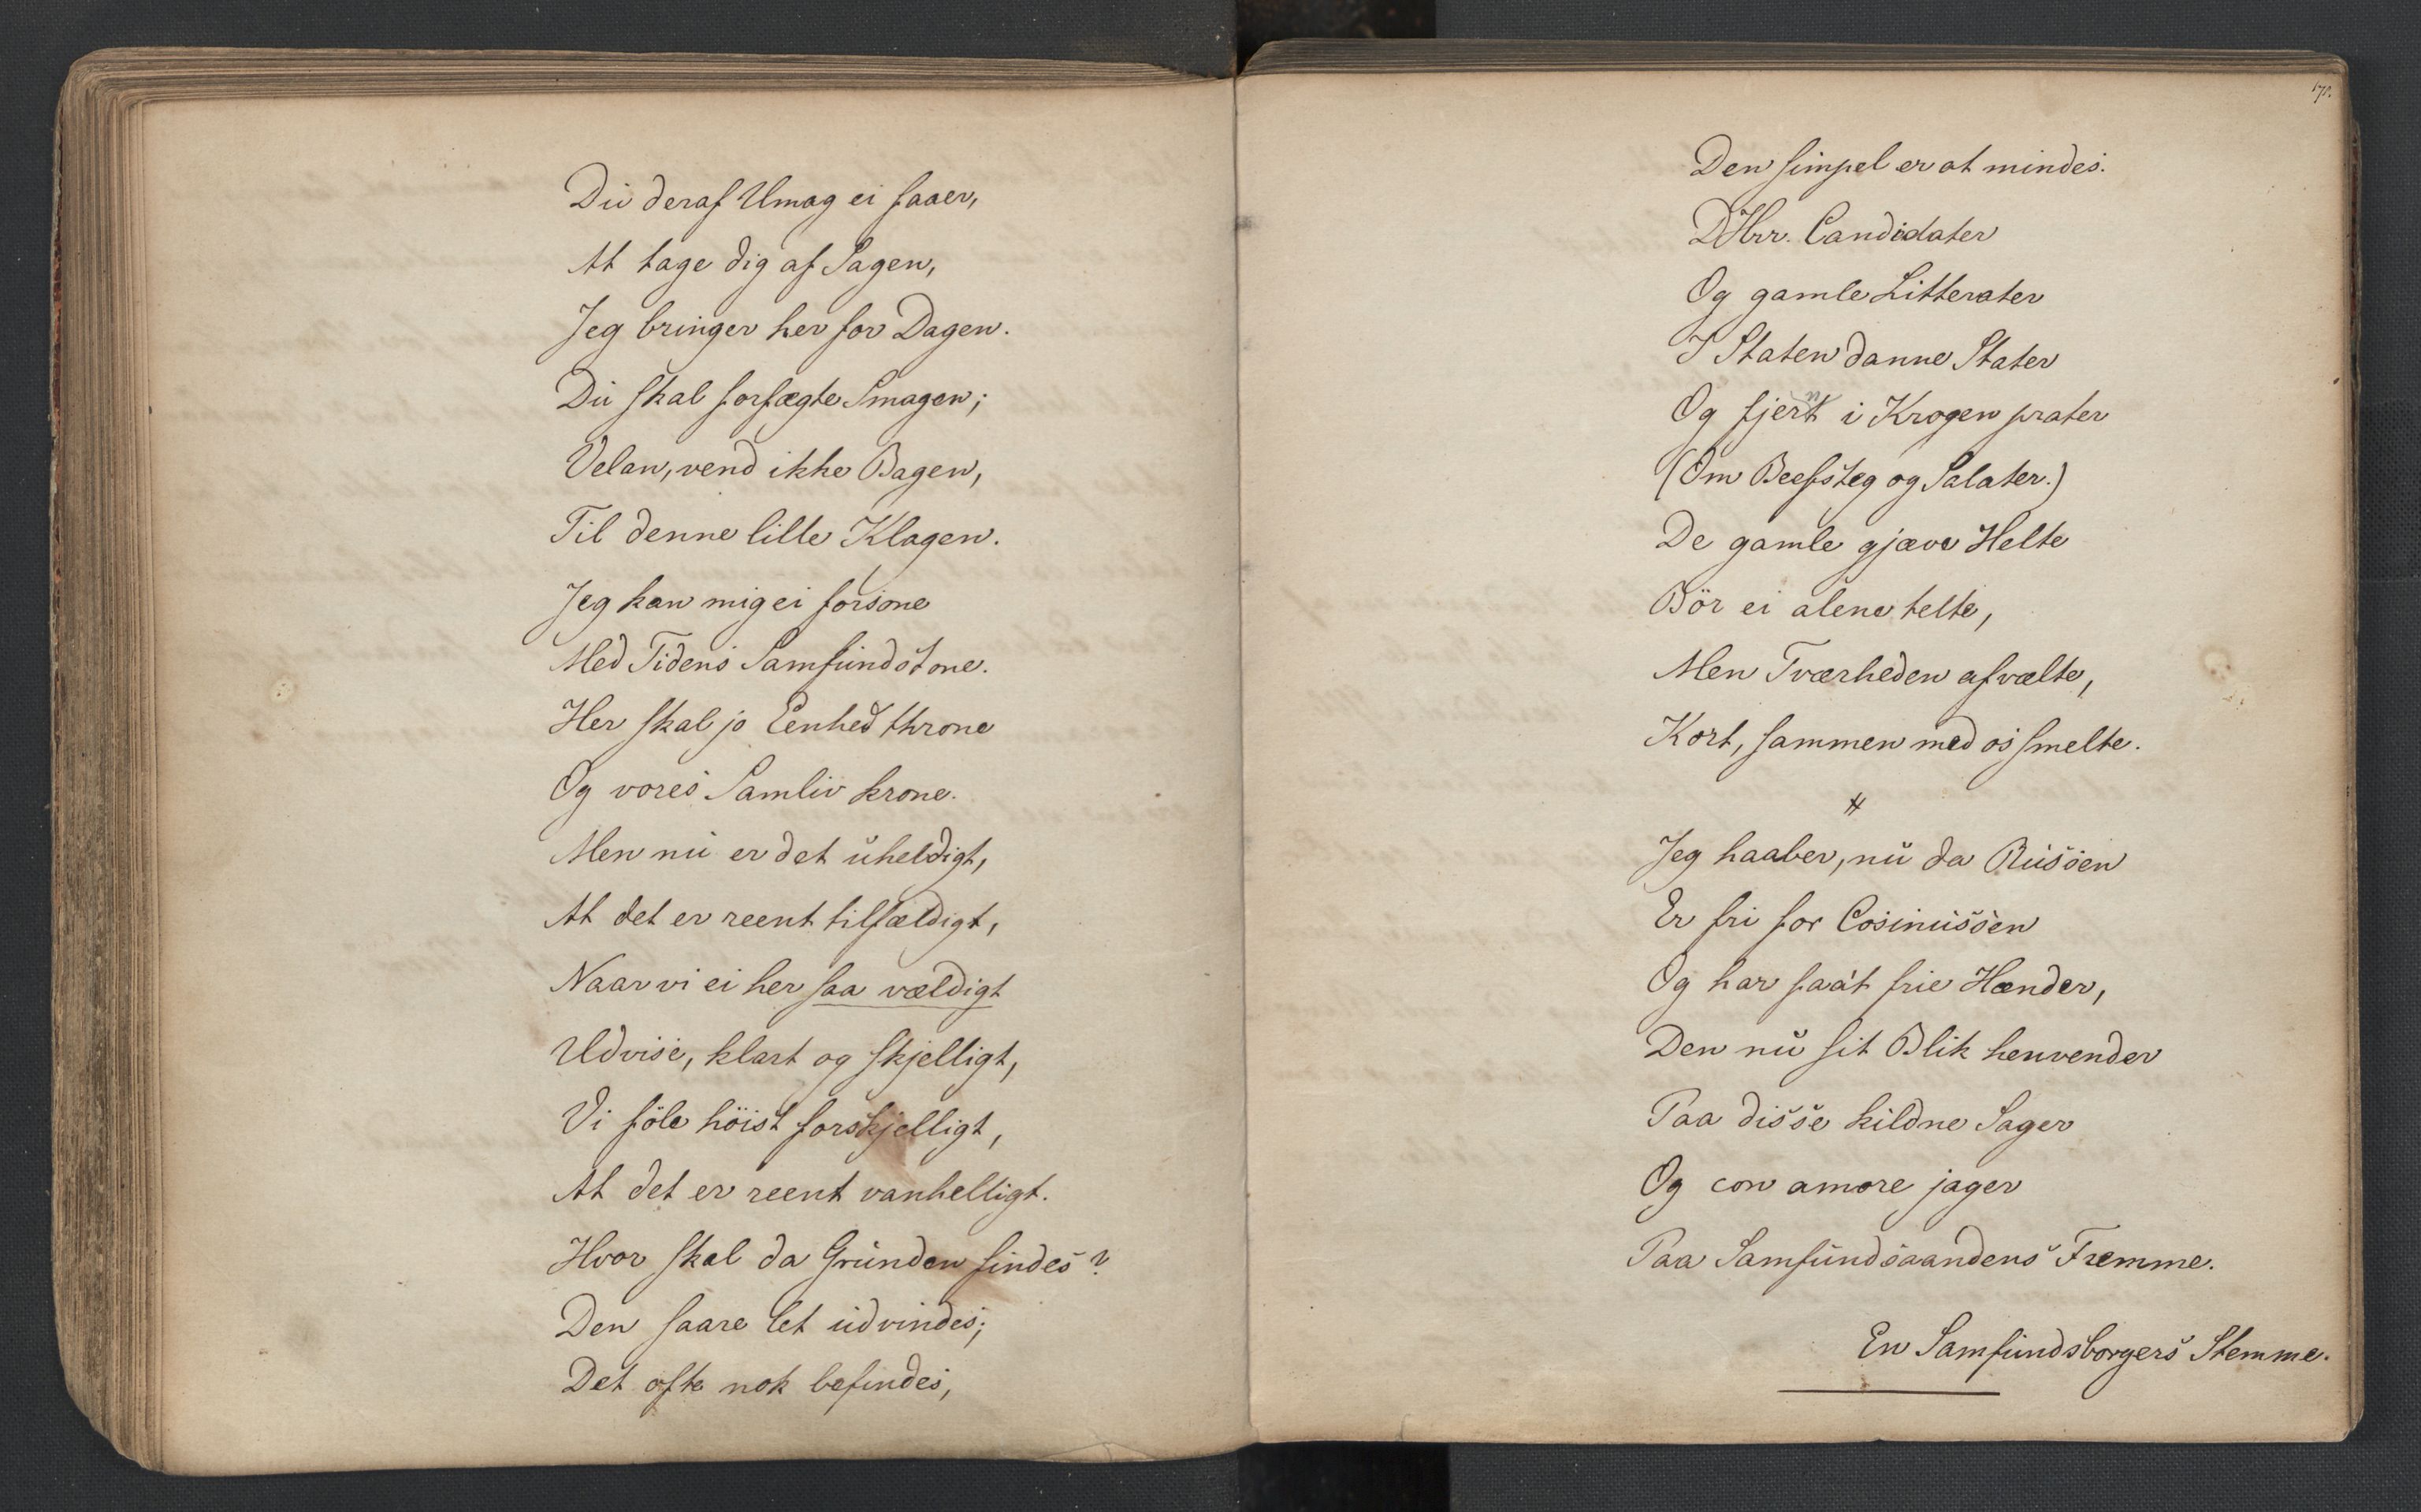 Du deraf Umag ei faaer,
At tage dig af Sagen,
Jeg bringer her for Dagen.
Du skal forfægte Smagen;
Velan, vend ikke Bagen,
Til denne lille Klagen.
Jeg kan mig ei forsone
Med Tidens Samfundstone.
Her skal jo Eenhed throne
Og vores Samliv krone.
Men nu er det uheldigt,
At det er reent tilfældigt,
Naar vi ei her saa vældigt
Udvise, klart og skjelligt,
Vi föle höist forskjelligt,
At det er reent vanhelligt.
Hvor skal da Grunden findes?
Den saare let udvindes;
Det ofte nok befindes,
171.
Den simpel er at mindes.
DHrr. Candidater
Og gamle Litterater
I Staten danne Stater
Og fjernt i Krogen prater
(Om Beefsteg og Salater.)
De gamle gjæve Helte
Bör ei alene telte,
Men Tværheden afvælte,
Kort, sammen med os smelte.
Jeg haaber, nu da Russen
Er fri for Cosinussen
Og har faa't frie Hænder,
Den nu sit Blik henvender
Paa disse kildne Sager
Og con amore jager
Paa Samfundsaandens Fremme.
En Samfundsborgers Stemme.